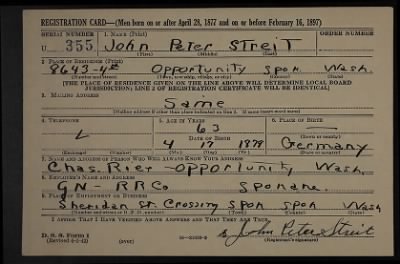 REGISTRATION CARD—(Men born on or after April 28, 1877 and on or before February 16, 1897)
SERIAL NUMBER 1. NAME (Print) ORDER NUMBER
U 355 John Peter Streit
(First) (Middle) (Last)
2. PLACE OF RESIDENCE (Print)
8643-4th Opportunity Spon. Wash.
(Number and street) (Town, township, village, or city) (County) (State)
[THE PLACE OF RESIDENCE GIVEN ON THE LINE ABOVE WILL DETERMINE LOCAL BOARD
JURISDICTION; LINE 2 OF REGISTRATION CERTIFICATE WILL BE IDENTICAL]
3. MAILING ADDRESS
Same
[Mailing address if other than place indicated on line 2. If same insert word same]
4. TELEPHONE 5. AGE IN YEARS 6. PLACE OF BIRTH
63
DATE OF BIRTH (Town or county)
4 17 1879 Germany
(Mo.) (Day) (Yr.) (State or country)
7. NAME AND ADDRESS OF PERSON WHO WILL ALWAYS KNOW YOUR ADDRESS
Chas. Opportunity Wash.
8. EMPLOYER'S NAME AND ADDRESS
GN-RRCo Spokane.
9. PLACE OF EMPLOYMENT OR BUSINESS
Sheridan St. Crossing Spon Spon Wash
(Number and street or R. F. D. number) (Town) (County) (State)
I AFFIRM THAT I HAVE VERIFIED ABOVE ANSWERS AND THAT THEY ARE TRUE.
D. S. S. Form 1
(Revised 4-1-42) (over) John Peter Streit
(Registrant's signature)